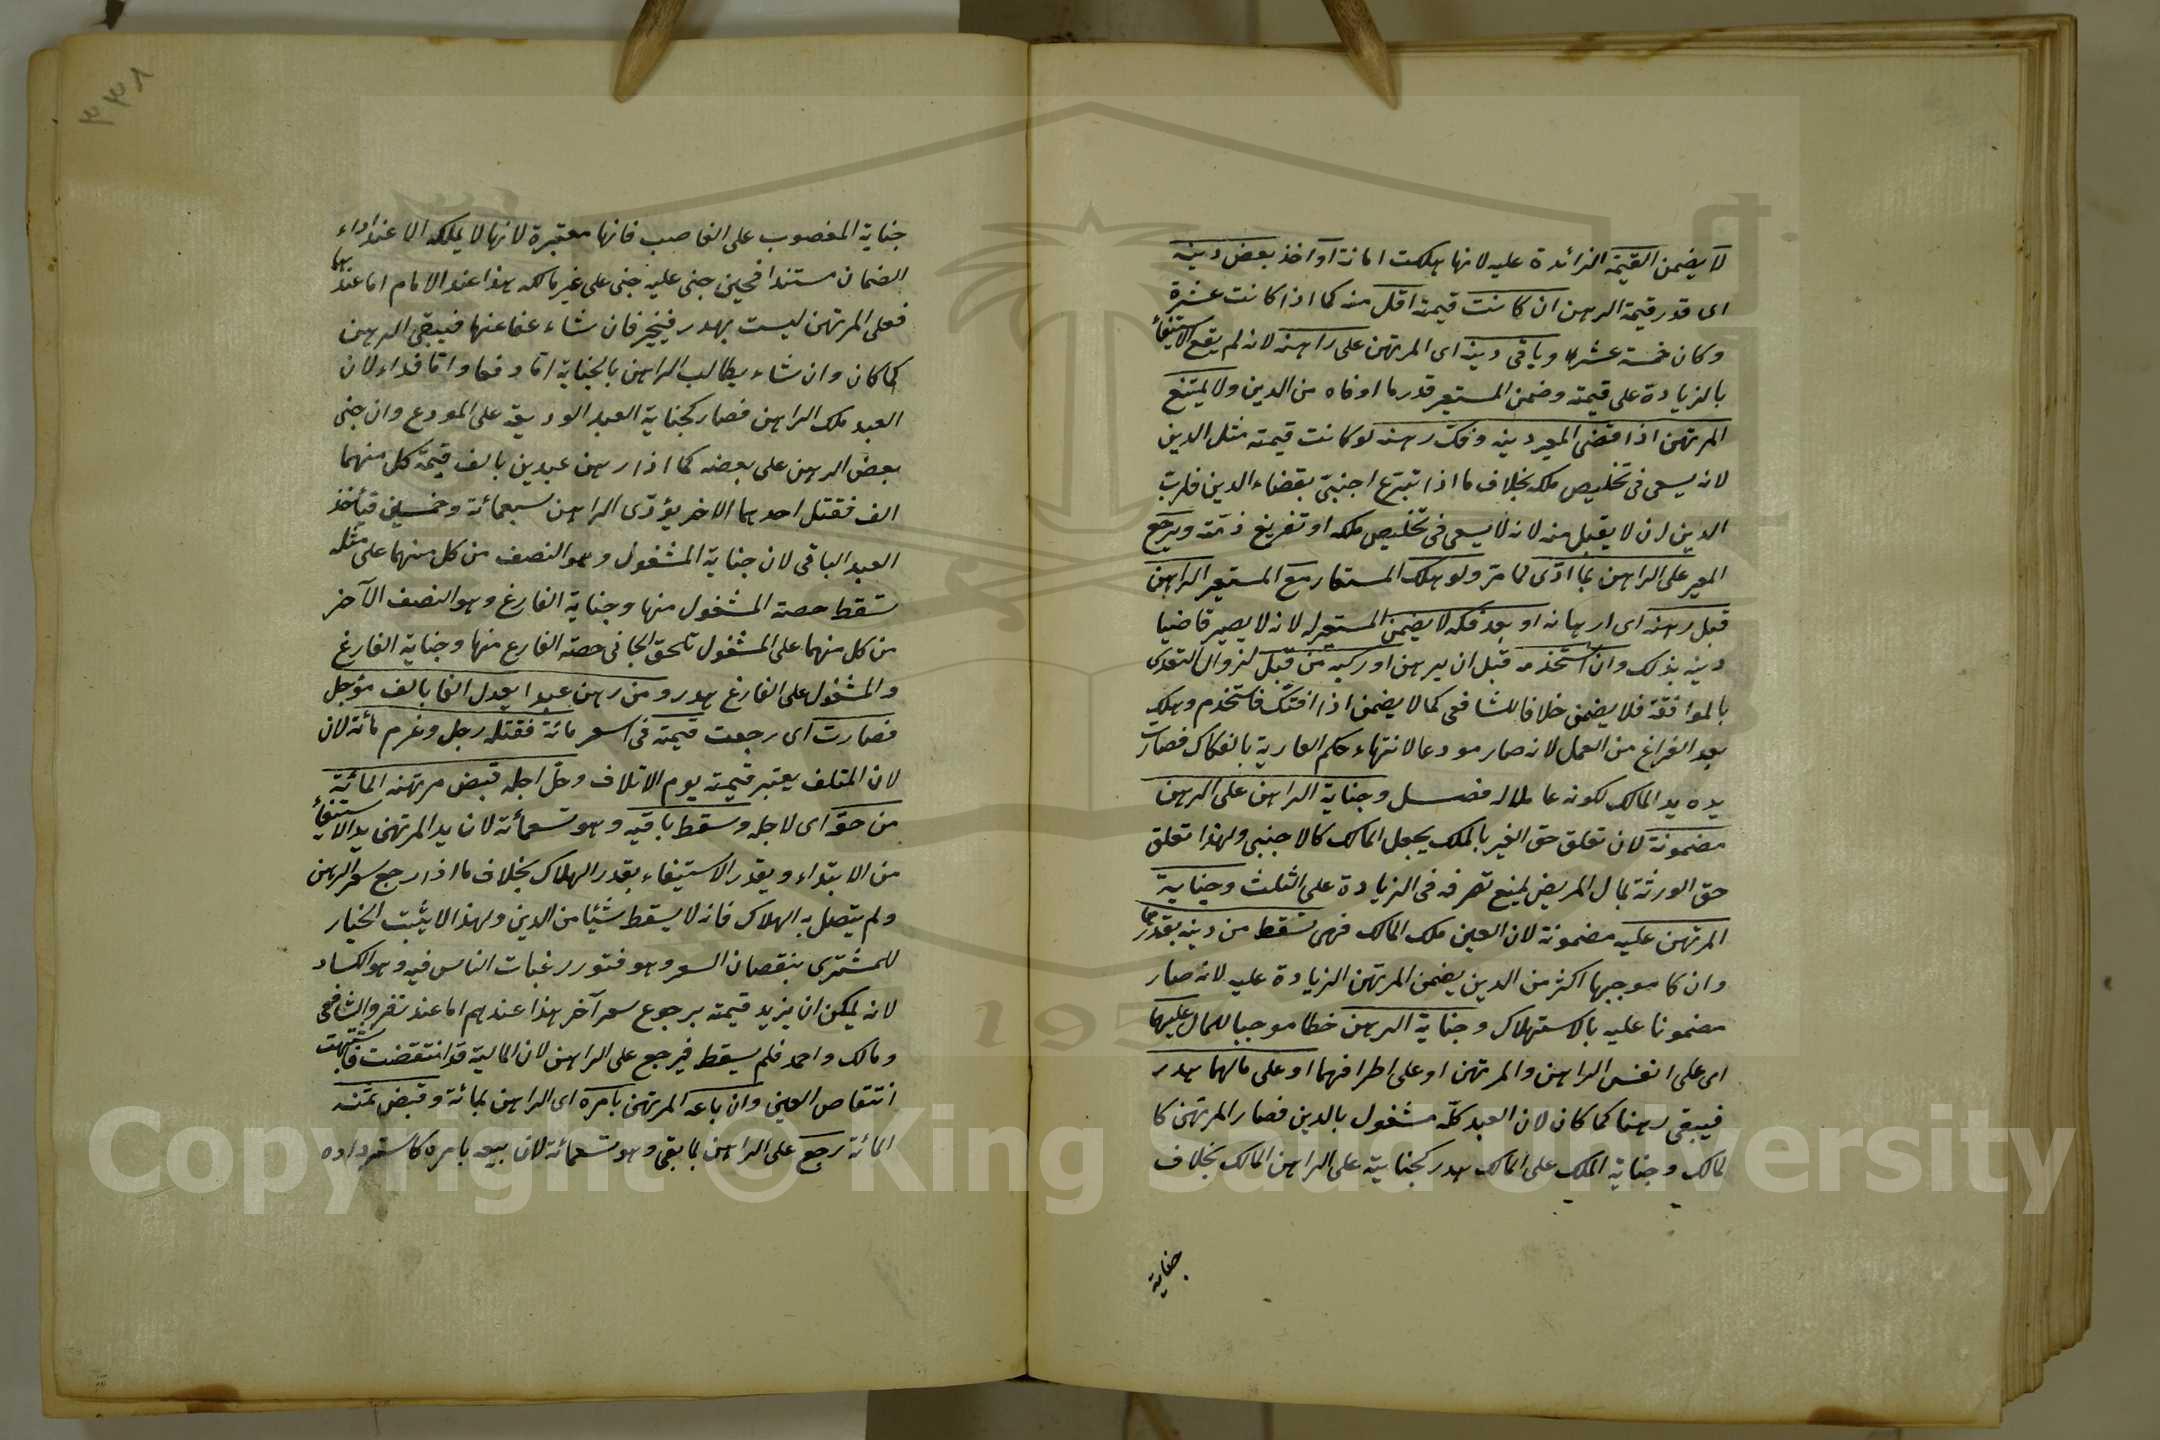 لا يضمن القيمة الزائدة عليه لانها هلكت امانة او اخذ بعض دينه
اى قدر قيمة الرهن ان كانت قيمته اقل منه كما اذا كانت عشرة
وكان خمسة عشر وباقى دينه اى المرتهن على راهنه لانه لم يقع الاستيفاء
بالزيادة على قيمته وضمن المستعير قدر ما اوفاه من الدين ولا يمتنع
المرتهن اذا قضى المعير دينه وفك رهنه لو كانت قيمته مثل الدين
لانه يسعى فى تخليص ملكه بخلاف ما اذا تبرع اجنبى بقضاء الدين فلرب
الدين ان لا يقبل منه لانه لا يسعى فى تخليص ملكه او تفريغ ذمته ويرجع
المعير على الراهن بما ادى لما مر ولو هلك المستعار مع المستعير الراهن
قبل رهنه اى ارهانه او بعد فكه لا يضمن المستعير له لانه لا يصير قاضيا
دينه بذلك وان استخدمه قبل ان يرهن او ركبه من قبل لزوال التعدى
بالموافقة فلا يضمن خلافا للشافعى كما لا يضمن اذا افتك فاستخدم وهلك
بعد الفراغ من العمل لانه صار مودعا لانتهاء حكم العارية بانفكاك فصارت
يده يد المالك لكونه عاملا له فصل وجناية الراهن على الرهن
مضمونة لان تعلق حق الغير بالملك يجعل المالك كالاجنبى ولهذا تعلق
حق الورثة بمال المريض يمنع تصرفه فى الزيادة على الثلث وجناية
المرتهن عليه مضمونة لان العين ملك المالك فهى تسقط من دينه بقدرها
وان كا موجبها اكثر من الدين يضمن المرتهن الزيادة عليه لانه صار
مضمونا عليه بالاستهلاك وجناية الرهن خطا موجبا للمال عليهما
اى على انفس الراهن والمرتهن او على اطرافهما او على مالهما هدر
فيبقى رهنا كما كان لان العبد كله مشغول بالدين فصار المرتهن كا
لمالك وجناية الملك على المالك هدر كجنايته على الراهن المالك بخلاف
جناية
٣٣٨
جناية المغصوب على الغاصب فانها معتبرة لانها لا يملكه الا عند اداء
الضمان مستندا فحين جنى عليه جنى على غير مالكه هذا عند الامام اما عندهما
فعلى المرتهن ليست بهدر فيخير فان شاء عفا عنها فيبقى الرهن
كما كان وان شاء يطالب الراهن بالجناية اما دفعا واما فداء لان
العبد ملك الراهن فصار كجناية العبد الوديعة على المودع وان جنى
بعض الرهن على بعضه كما اذا رهن عبدين بالف قيمة كل منهما
الف فقتل احدهما الاخر يؤدى الراهن سبعمائة وخمسين فيأخذ
العبد الباقى لان جناية المشغول وهو النصف من كل منهما على مثله
تسقط حصة المشغول منها وجناية الفارغ وهو النصف الآخر
من كل منهما على المشغول تلحق الجانى حصة الفارغ منها وجناية الفارغ
والمشغول على الفارغ هدر ومن رهن عبدا يعدل الفا بالف مؤجل
فصارت اى رجعت قيمته فى السعر مائة فقتله رجل وغرم مائة لان
لان المتلف يعتبر قيمته يوم الاتلاف وحل اجله قبض مرتهنه المائة
من حقه اى لاجله وسقط باقيه وهو تسعمائة لان يد المرتهن يد الاستيفاء
من الابتداء ويقدر الاستيفاء بقدر الهلاك بخلاف ما اذا رجع سعر الرهن
ولم يتصل به الهلاك فانه لا يسقط شيئا من الدين ولهذا لا يثبت الخيار
للمشترى بنقصان السعر وهو فتور رغبات الناس فيه وهو الكساد
لانه يمكن ان يزيد قيمته برجوع سعر آخر هذا عندهم اما عند زفر والشافعى
ومالك واحمد فلم يسقط فيرجع على الراهن لان المالية قد انتقضت فاشبهت
انتقاص العين وان باعه المرتهن بامره اى الراهن بمائة وقبض ثمنه
المائة رجع على الراهن بما بقى وهو تسعمائة لان بيعه بامره كاسترداده
Copyright © King Saud University
195